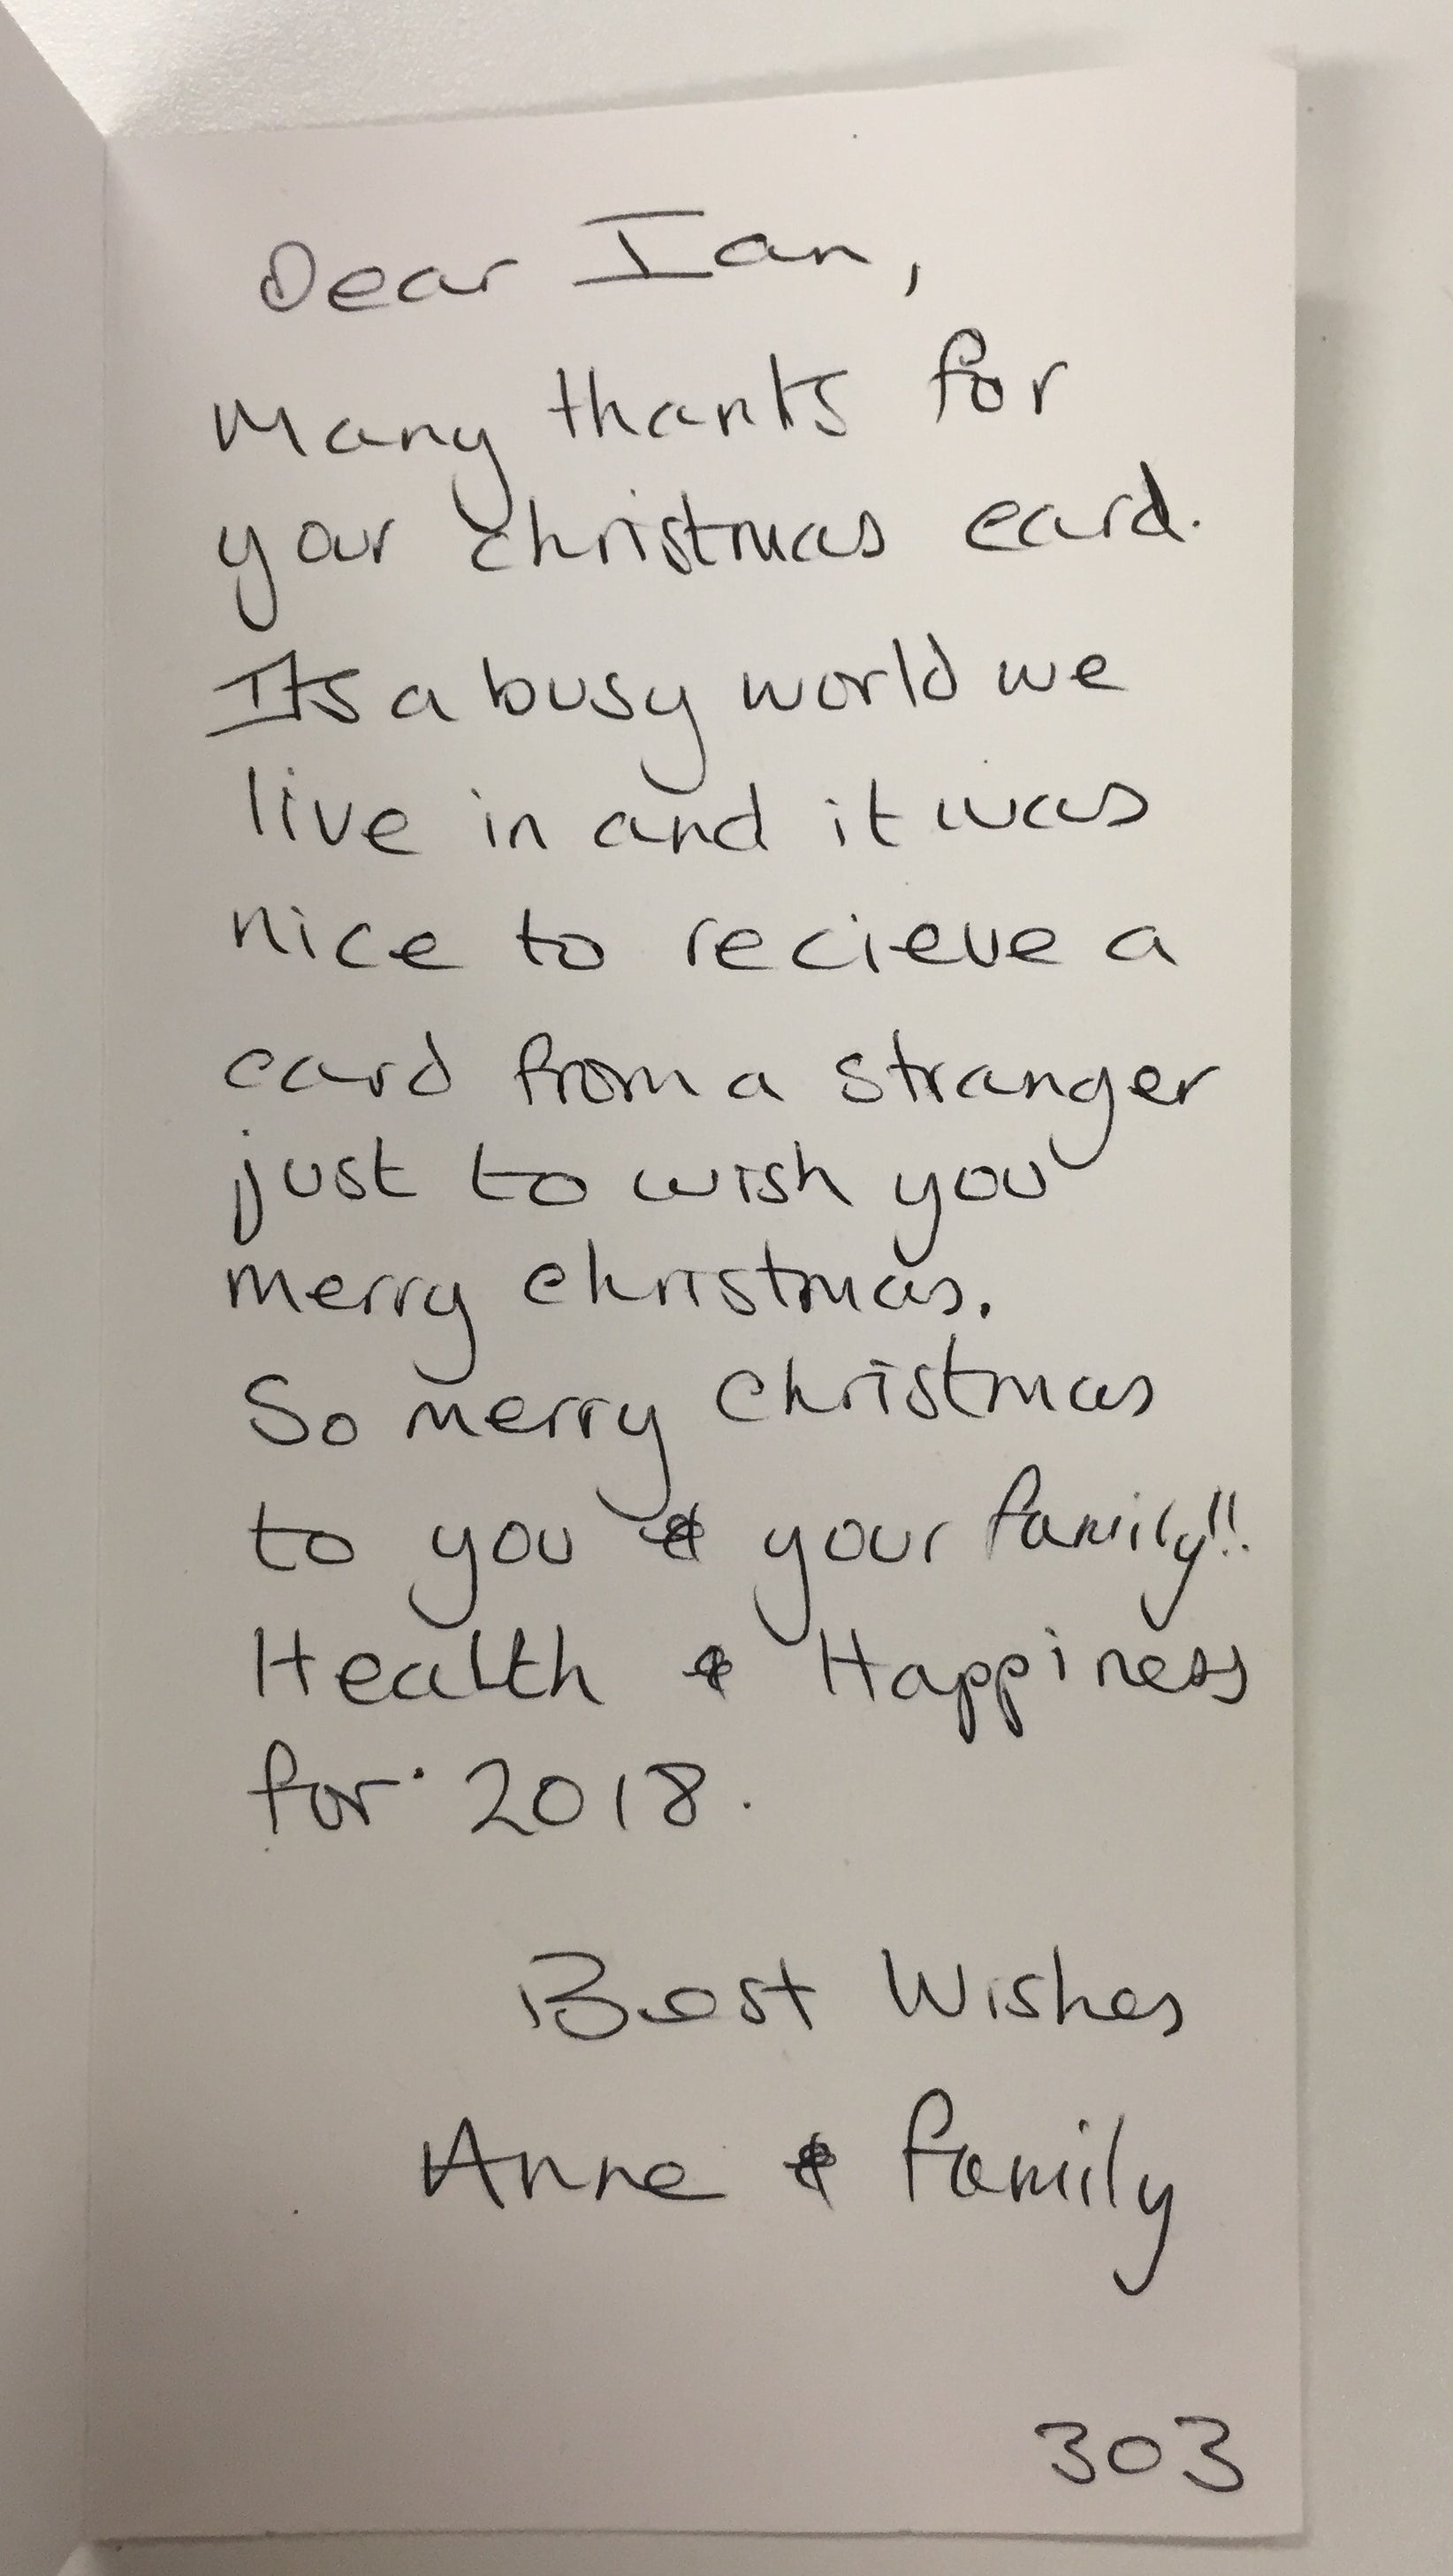 Dear Ian,
Many thanks for
your christmas card.
Its a busy world we
live in and it was
nice to recieve a
card from a stranger
just to wish you
merry christmas.
So merry christmas
to you & your family!!
Health & Happiness
for 2018.
Best Wishes
Anne & family
303